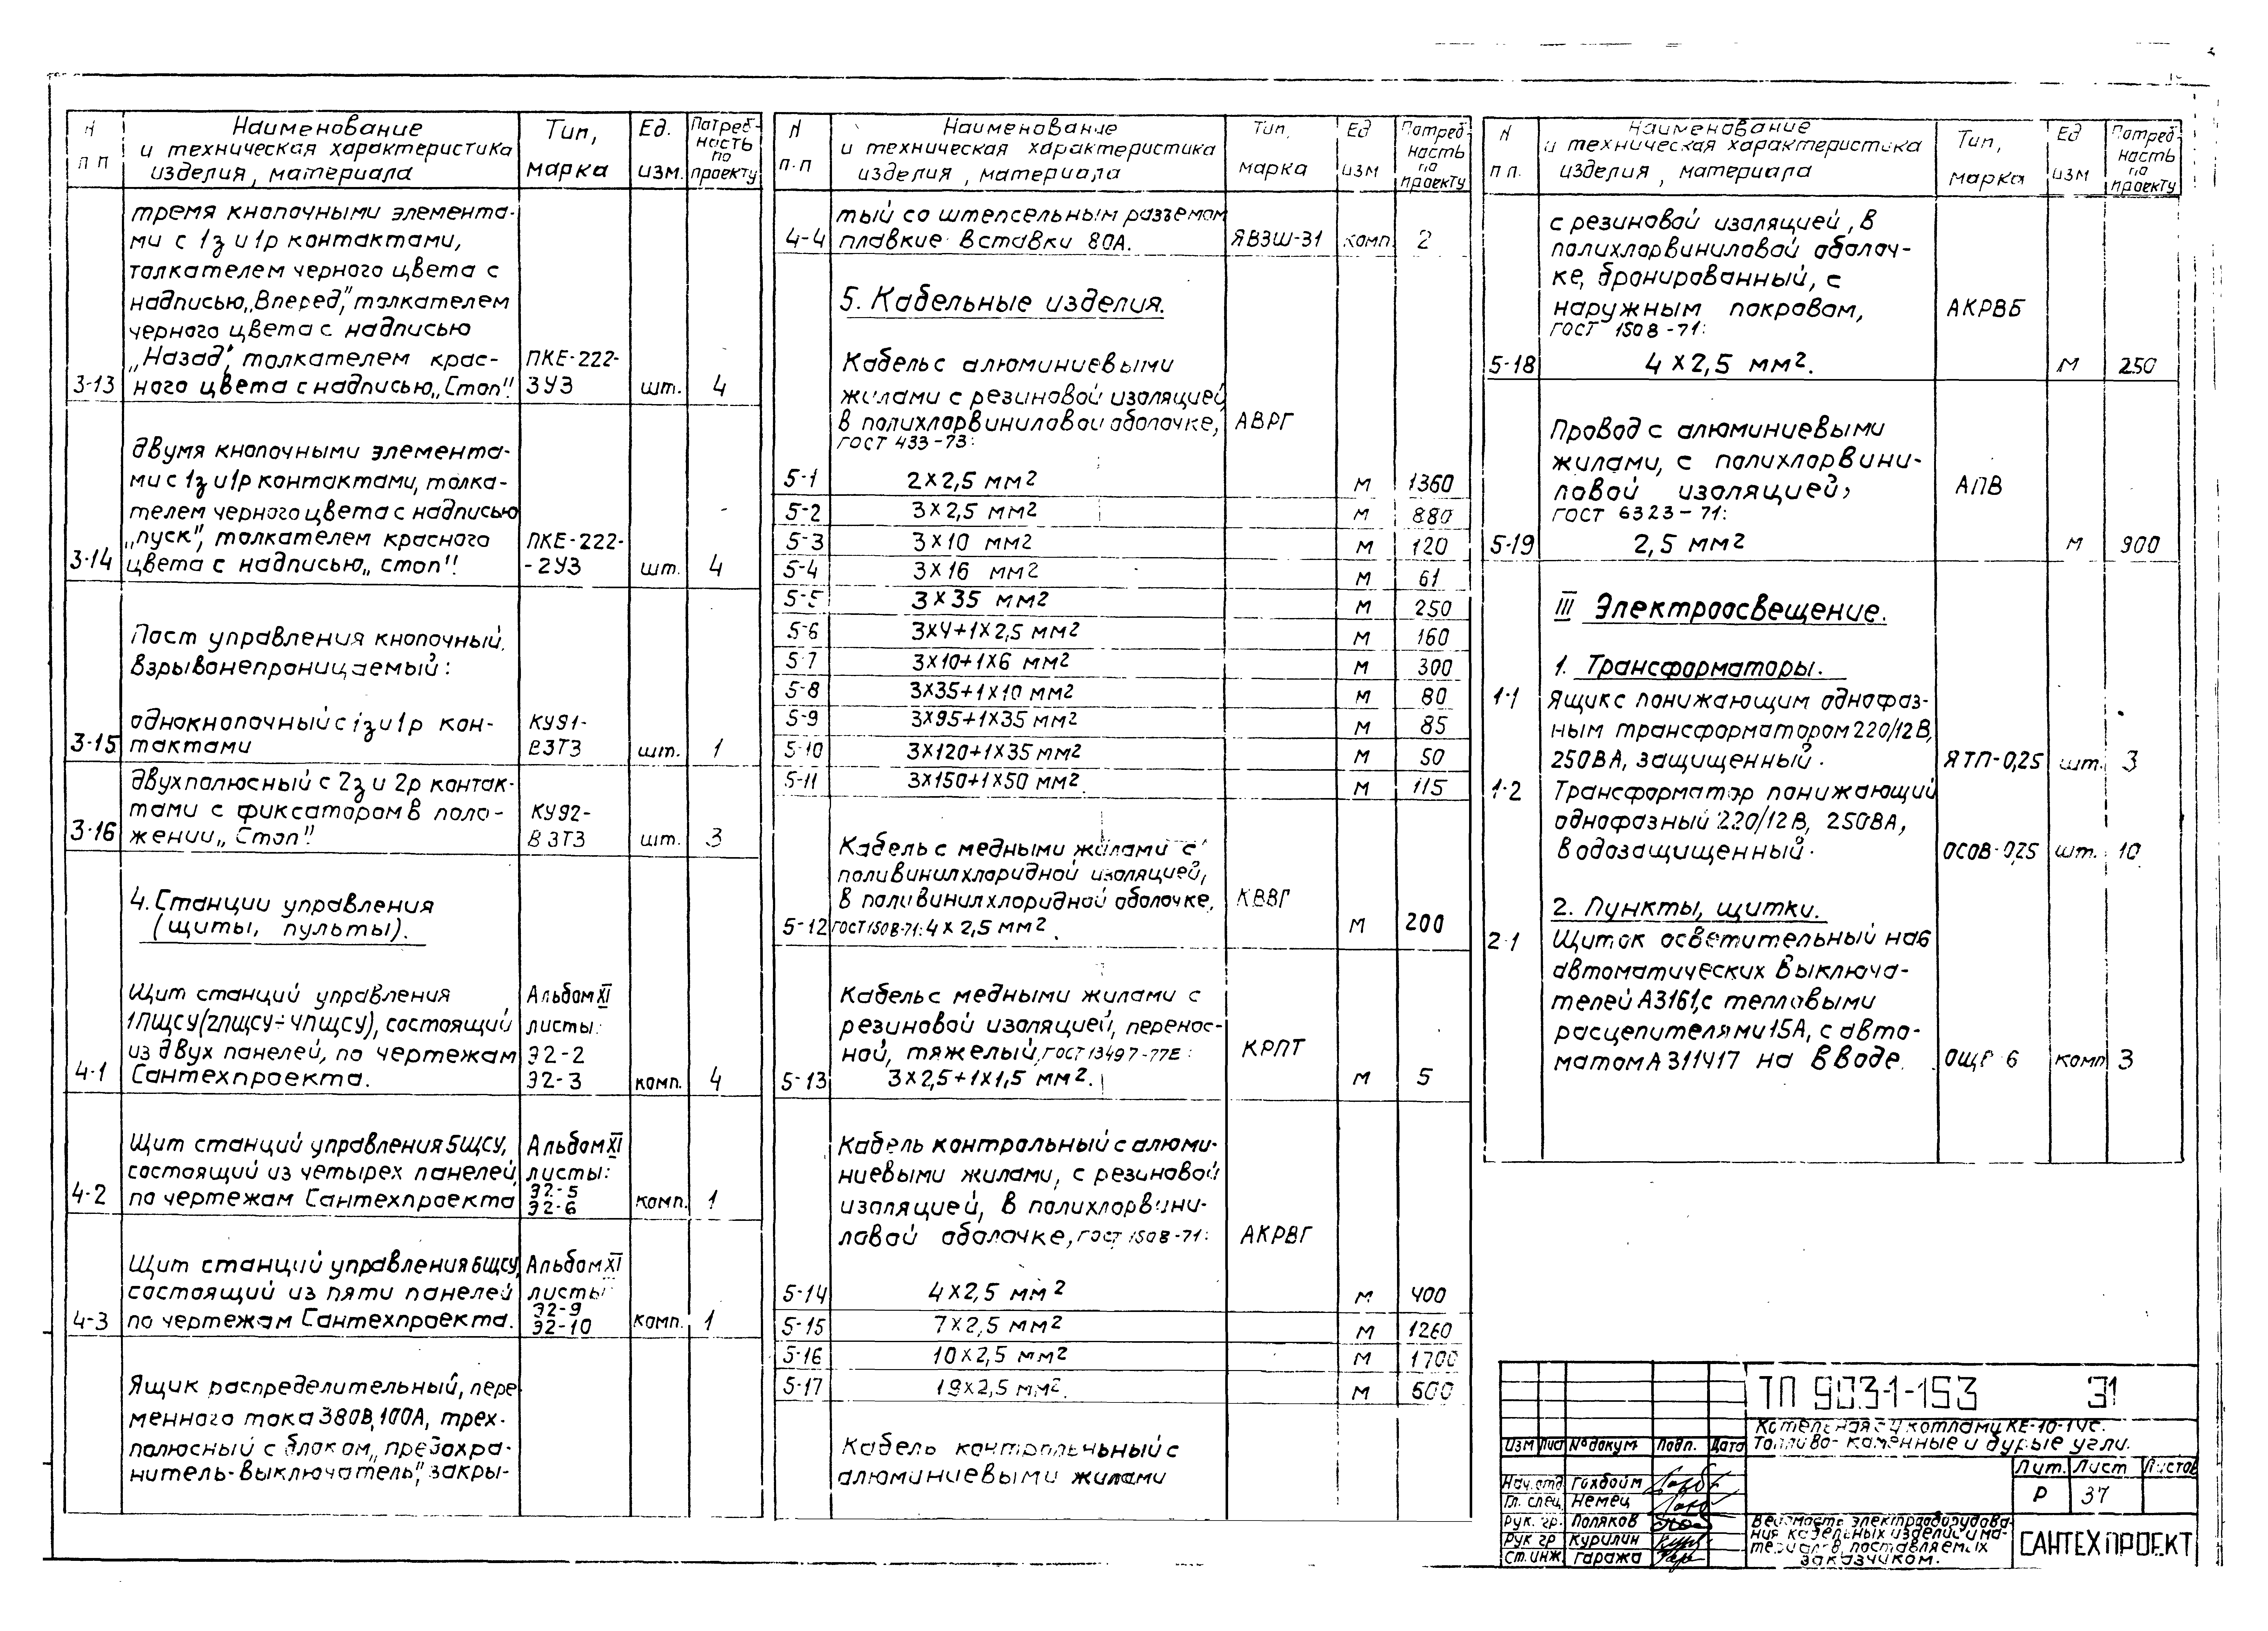 N п п
Наименование
и техническая характеристика
изделия, материала
Тип, марка
Ед. изм.
Потреб-
ность
по
проекту
тремя кнопочными элемента-
ми с 1з и 1р контактами,
толкателем черного цвета с
надписью „Вперед", толкателем
черного цвета с надписью
„Назад", толкателем крас-
ПКЕ-222-
3-13 ного цвета с надписью „Стоп". 3У3 шт. 4
двумя кнопочными элемента-
ми с 1з и 1р контактами, толка-
телем черного цвета с надписью
„пуск", толкателем красного
ПКЕ-222-
3-14 цвета с надписью „стоп". -2У3 шт. 4
Пост управления кнопочный,
взрывонепроницаемый:
однокнопочный с 1з и 1р кон-
КУ91-
3-15 тактами ВЗТ3 шт. 1
двухполюсный с 2з и 2р контак-
тами с фиксатором в поло-
КУ92-
3-16 жении „Стоп". ВЗТ3 шт. 3
4. Станции управления
(щиты, пульты).
Щит станций управления Альбом XI
1ПЩСУ(2ПЩСУ÷4ПЩСУ), состоящий листы:
из двух панелей, по чертежам Э2-2
4-1 Сантехпроекта. Э2-3 комп. 4
Щит станций управления 5ЩСУ, Альбом XI
состоящий из четырех панелей, листы:
Э2-5
4-2 по чертежам Сантехпроекта Э2-6 комп. 1
Щит станций управления 6ЩСУ, Альбом XI
состоящий из пяти панелей листы:
Э2-9
4-3 по чертежам Сантехпроекта. Э2-10 комп. 1
Ящик распределительный, пере
менного тока 380В, 100А, трех-
полюсный с блоком „предохра-
нитель-выключатель", закры-
N п.п
Наименование
и техническая характеристика
изделия, материала
Тип, марка
Ед изм
Потреб-
ность
по
проекту
тый со штепсельным разъемом
4-4 плавкие вставки 80А. ЯВЗШ-31 комп. 2
5. Кабельные изделия.
Кабель с алюминиевыми
жилами с резиновой изоляцией,
в полихлорвиниловой оболочке, АВРГ
ГОСТ 433-73:
5-1 2х2,5 мм2 м 1360
5-2 3х2,5 мм2 м 880
5-3 3х10 мм2 м 120
5-4 3х16 мм2 м 61
5-5 3х35 мм2 м 250
5-6 3х4+1х2,5 мм2 м 160
5-7 3х10+1х6 мм2 м 300
5-8 3х35+1х10 мм2 м 80
5-9 3х95+1х35 мм2 м 85
5-10 3х120+1х35 мм2 м 50
5-11 3х150+1х50 мм2. м 115
Кабель с медными жилами с
поливинилхлоридной изоляцией,
в поливинилхлоридной оболочке, КВВГ
5-12 ГОСТ 1508-71: 4х2,5 мм2. м 200
Кабель с медными жилами с
резиновой изоляцией, перенос-
ной, тяжелый, ГОСТ 13497-77Е: КРПТ
5-13 3х2,5+1х1,5 мм2. м 5
Кабель контрольный с алюми-
ниевыми жилами, с резиновой
изоляцией, в полихлорвини-
ловой оболочке, ГОСТ 1508-71: АКРВГ
5-14 4х2,5 мм2 м 400
5-15 7х2,5 мм2 м 1260
5-16 10х2,5 мм2 м 1700
5-17 19х2,5 мм2. м 600
Кабель контрольный с
алюминиевыми жилами
N п п.
Наименование
и техническая характеристика
изделия, материала
Тип, марка
Ед изм
Потреб-
ность
по
проекту
с резиновой изоляцией, в
полихлорвиниловой оболоч-
ке, бронированный, с
наружным покровом, АКРВБ
ГОСТ 1508-71:
5-18 4х2,5 мм2. м 250
Провод с алюминиевыми
жилами, с полихлорвини-
ловой изоляцией, АПВ
ГОСТ 6323-71:
5-19 2,5 мм2 м 900
III Электроосвещение.
1. Трансформаторы.
1-1 Ящик с понижающим однофаз-
ным трансформатором 220/12В,
250ВА, защищенный. ЯТП-0,25 шт. 3
1-2 Трансформатор понижающий
однофазный 220/12В, 250ВА,
водозащищенный. ОСОВ-0,25 шт. 10
2. Пункты, щитки.
2-1 Щиток осветительный на 6
автоматических выключа-
телей А3161, с тепловыми
расцепителями 15А, с авто-
матом А3114/7 на вводе. ОЩВ-6 комп 3
ТП 903-1-153 Э1
Котельная с 4 котлами КЕ-10-14с.
Топливо-каменные и бурые угли.
Изм Лист № докум. Подп. Дата
Лит. Лист Листов
Р 37
Нач. отд Гохбойм
Гл. спец. Немец
Рук. гр. Поляков
Рук гр Курилин
Ст. инж Гаража
Ведомость электрооборудова-
ния кабельных изделий и ма-
териалов, поставляемых
заказчиком.
САНТЕХПРОЕКТ